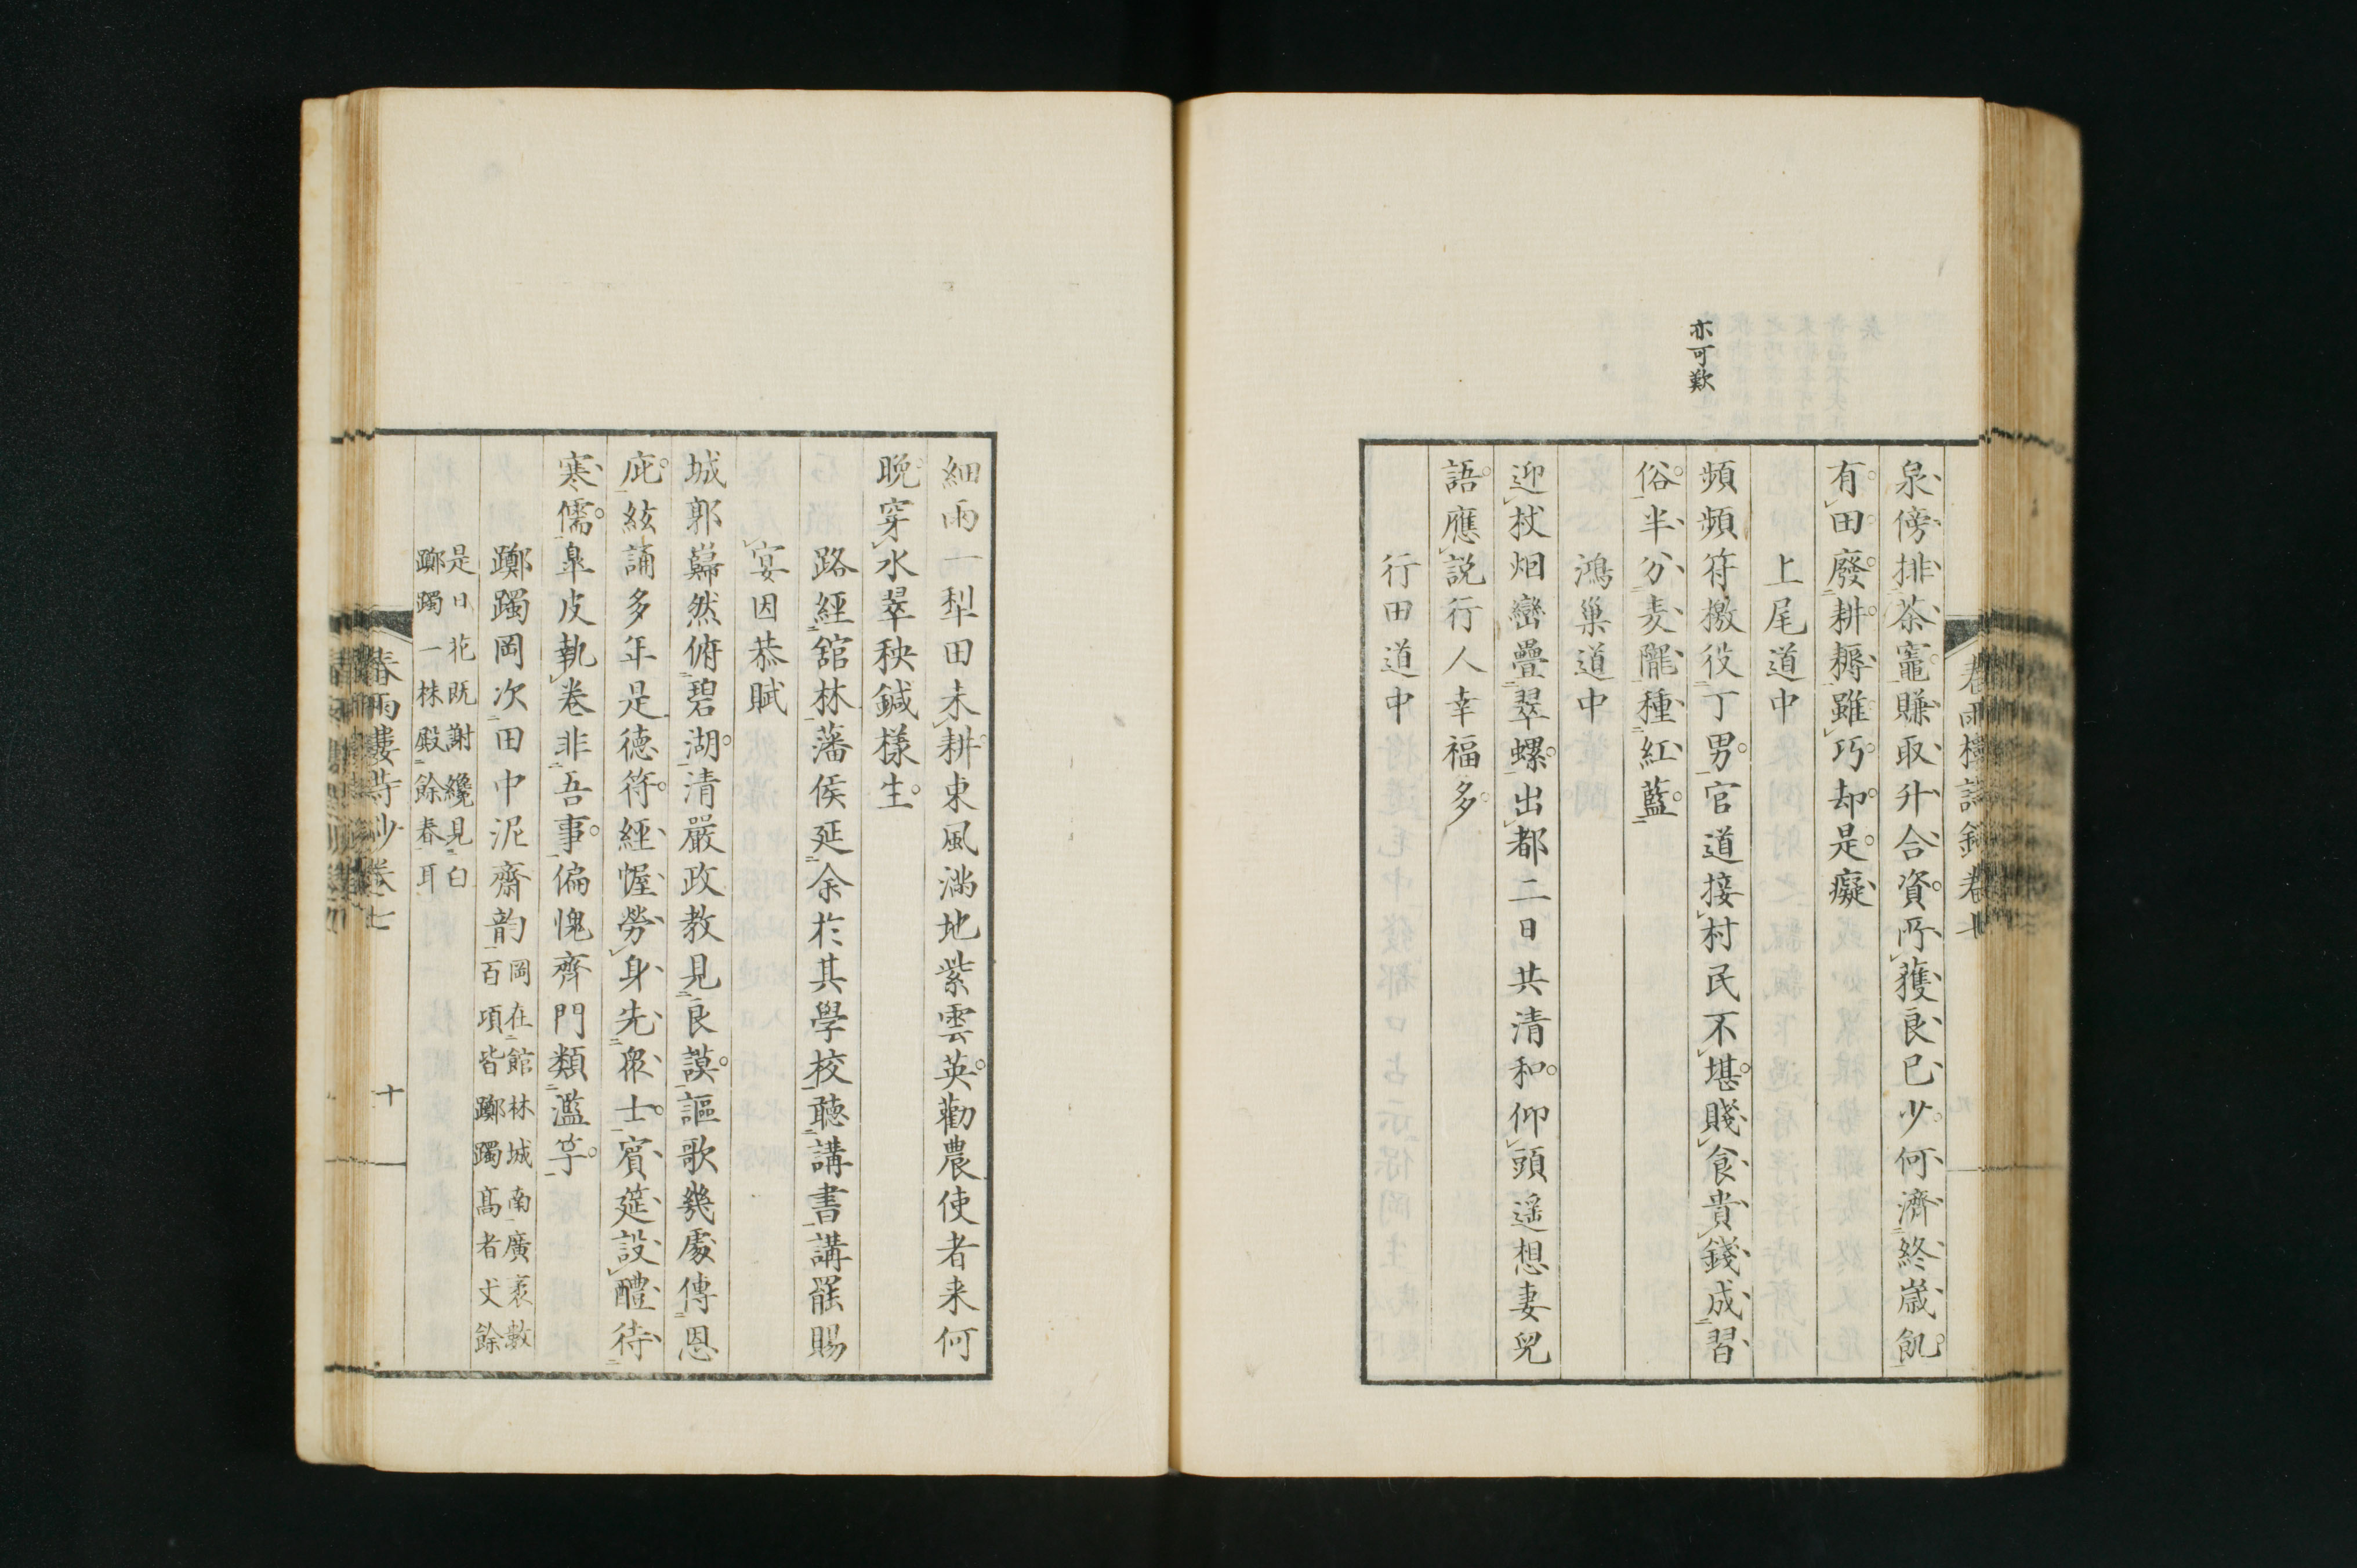 亦可歎
泉傍排茶竈賺取升合資所獲良已少何濟終歲飢
有田廢耕耨雖巧却是癡
上尾道中
頻頻符檄役丁男官道接村民不堪賤食貴錢成習
俗半分麦隴種紅藍
鴻巢道中
迎杖烟巒疊翠螺出都二日共清和仰頭遥想妻兒
語應説行人幸福多
行田道中
細雨一犁田未耕東風滿地紫雲英勸農使者来何
晚穿水翠秧鍼樣生
路經舘林藩侯延余於其學校聴講書講罷賜
宴因恭賦
城郭巋然俯碧湖清嚴政教見良謨謳歌幾處傳恩
庇絃誦多年是德符經幄勞身先衆士賓筵設醴待
寒儒皐皮執卷非吾事偏愧齊門類濫竽
躑躅岡次田中泥齋韵
岡在館林城南廣袤數
百項皆躑躅髙者丈餘
是日花既謝纔見白
躑躅一株殿餘春耳
春雨樓詩鈔卷七
十